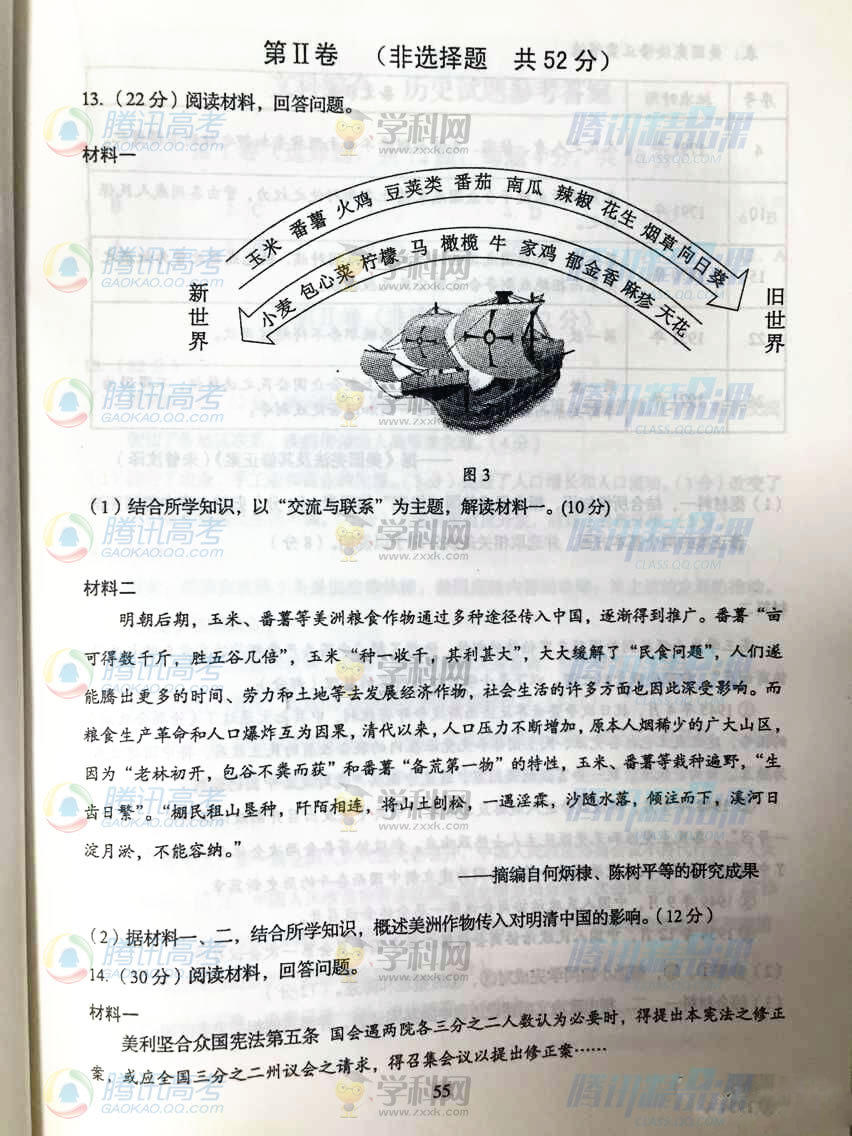 第Ⅱ卷 （非选择题 共52分）
13.（22分）阅读材料，回答问题。
材料一
玉米 番薯 火鸡 豆荚类 番茄 南瓜 辣椒 花生 烟草 向日葵
小麦 包心菜 柠檬 马 橄榄 牛 家鸡 郁金香 麻疹 天花
新世界
旧世界
图3
（1）结合所学知识，以“交流与联系”为主题，解读材料一。(10分)
材料二
明朝后期，玉米、番薯等美洲粮食作物通过多种途径传入中国，逐渐得到推广。番薯“亩
可得数千斤，胜五谷几倍”，玉米“种一收千，其利甚大”，大大缓解了“民食问题”，人们遂
能腾出更多的时间、劳力和土地等去发展经济作物，社会生活的许多方面也因此深受影响。而
粮食生产革命和人口爆炸互为因果，清代以来，人口压力不断增加，原本人烟稀少的广大山区，
因为“老林初开，包谷不粪而获”和番薯“备荒第一物”的特性，玉米、番薯等栽种遍野，“生
齿日繁”。“棚民租山垦种，阡陌相连，将山土刨松，一遇淫霖，沙随水落，倾注而下，溪河日
淀月淤，不能容纳。”
——摘编自何炳棣、陈树平等的研究成果
（2）据材料一、二，结合所学知识，概述美洲作物传入对明清中国的影响。（12分）
14.（30分）阅读材料，回答问题。
材料一
美利坚合众国宪法第五条 国会遇两院各三分之二人数认为必要时，得提出本宪法之修正
案，或应全国三分之二州议会之请求，得召集会议以提出修正案……
55
腾讯高考
GAOKAO.QQ.COM
学科网
www.zxxk.com
腾讯精品课
CLASS.QQ.COM